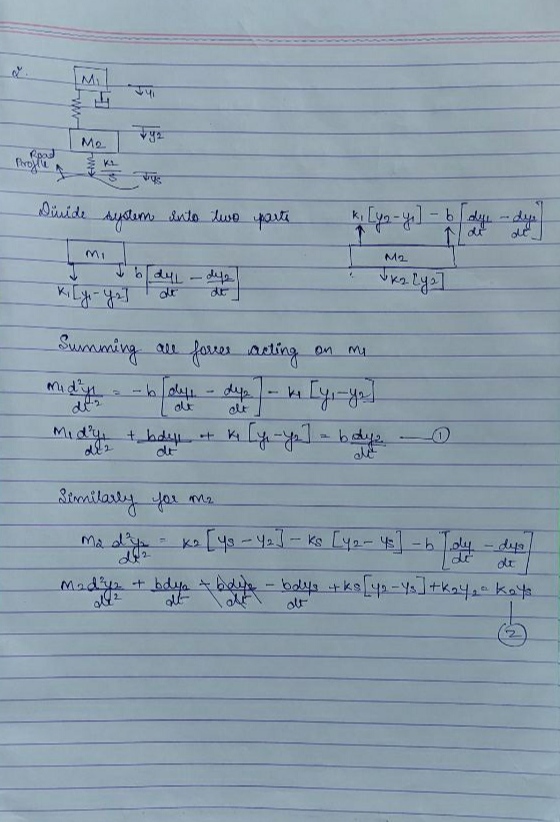 2.
M1
↓y1
↓y2
M2
Road
Profile
K2
↓y3
Divide system into two parts
K1[y2-y1] - b[dy1/dt - dy2/dt]
M1
M2
b[dy1/dt - dy2/dt]
K2[y2]
K1[y1-y2]
Summing all forces acting on m1
M1 d²y1/dt² = -b[dy1/dt - dy2/dt] - K1[y1-y2]
M1 d²y1/dt² + bdy1/dt + K1[y1-y2] = b dy2/dt — ①
Similarly for m2
M2 d²y2/dt² = K2[y3-y2] - Ks[y2-y3] - b[dy/dt - dy3/dt]
M2d²y2/dt² + bdy2/dt - bdy3/dt + Ks[y2-y3] + K2y2 = K2y3
②